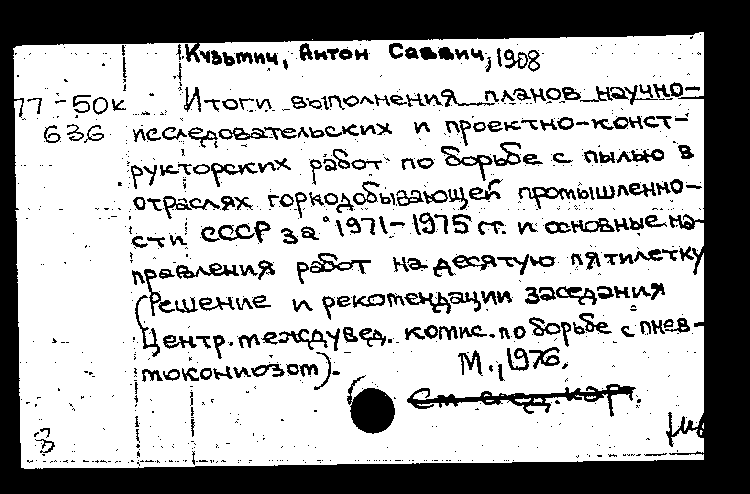 Кузьмич, Антон Саввич, 1908
77-50к
636
Итоги выполнения планов научно-
исследовательских и проектно-конст-
рукторских работ по борьбе с пылью в
отраслях горнодобывающей промышленно-
сти СССР за 1971-1975 гг. и основные на-
правления работ на десятую пятилетку
(Решение и рекомендации заседания
Центр. междувед. комис. по борьбе с пнев-
мокониозом).
М., 1976.
См. след. карт.
8